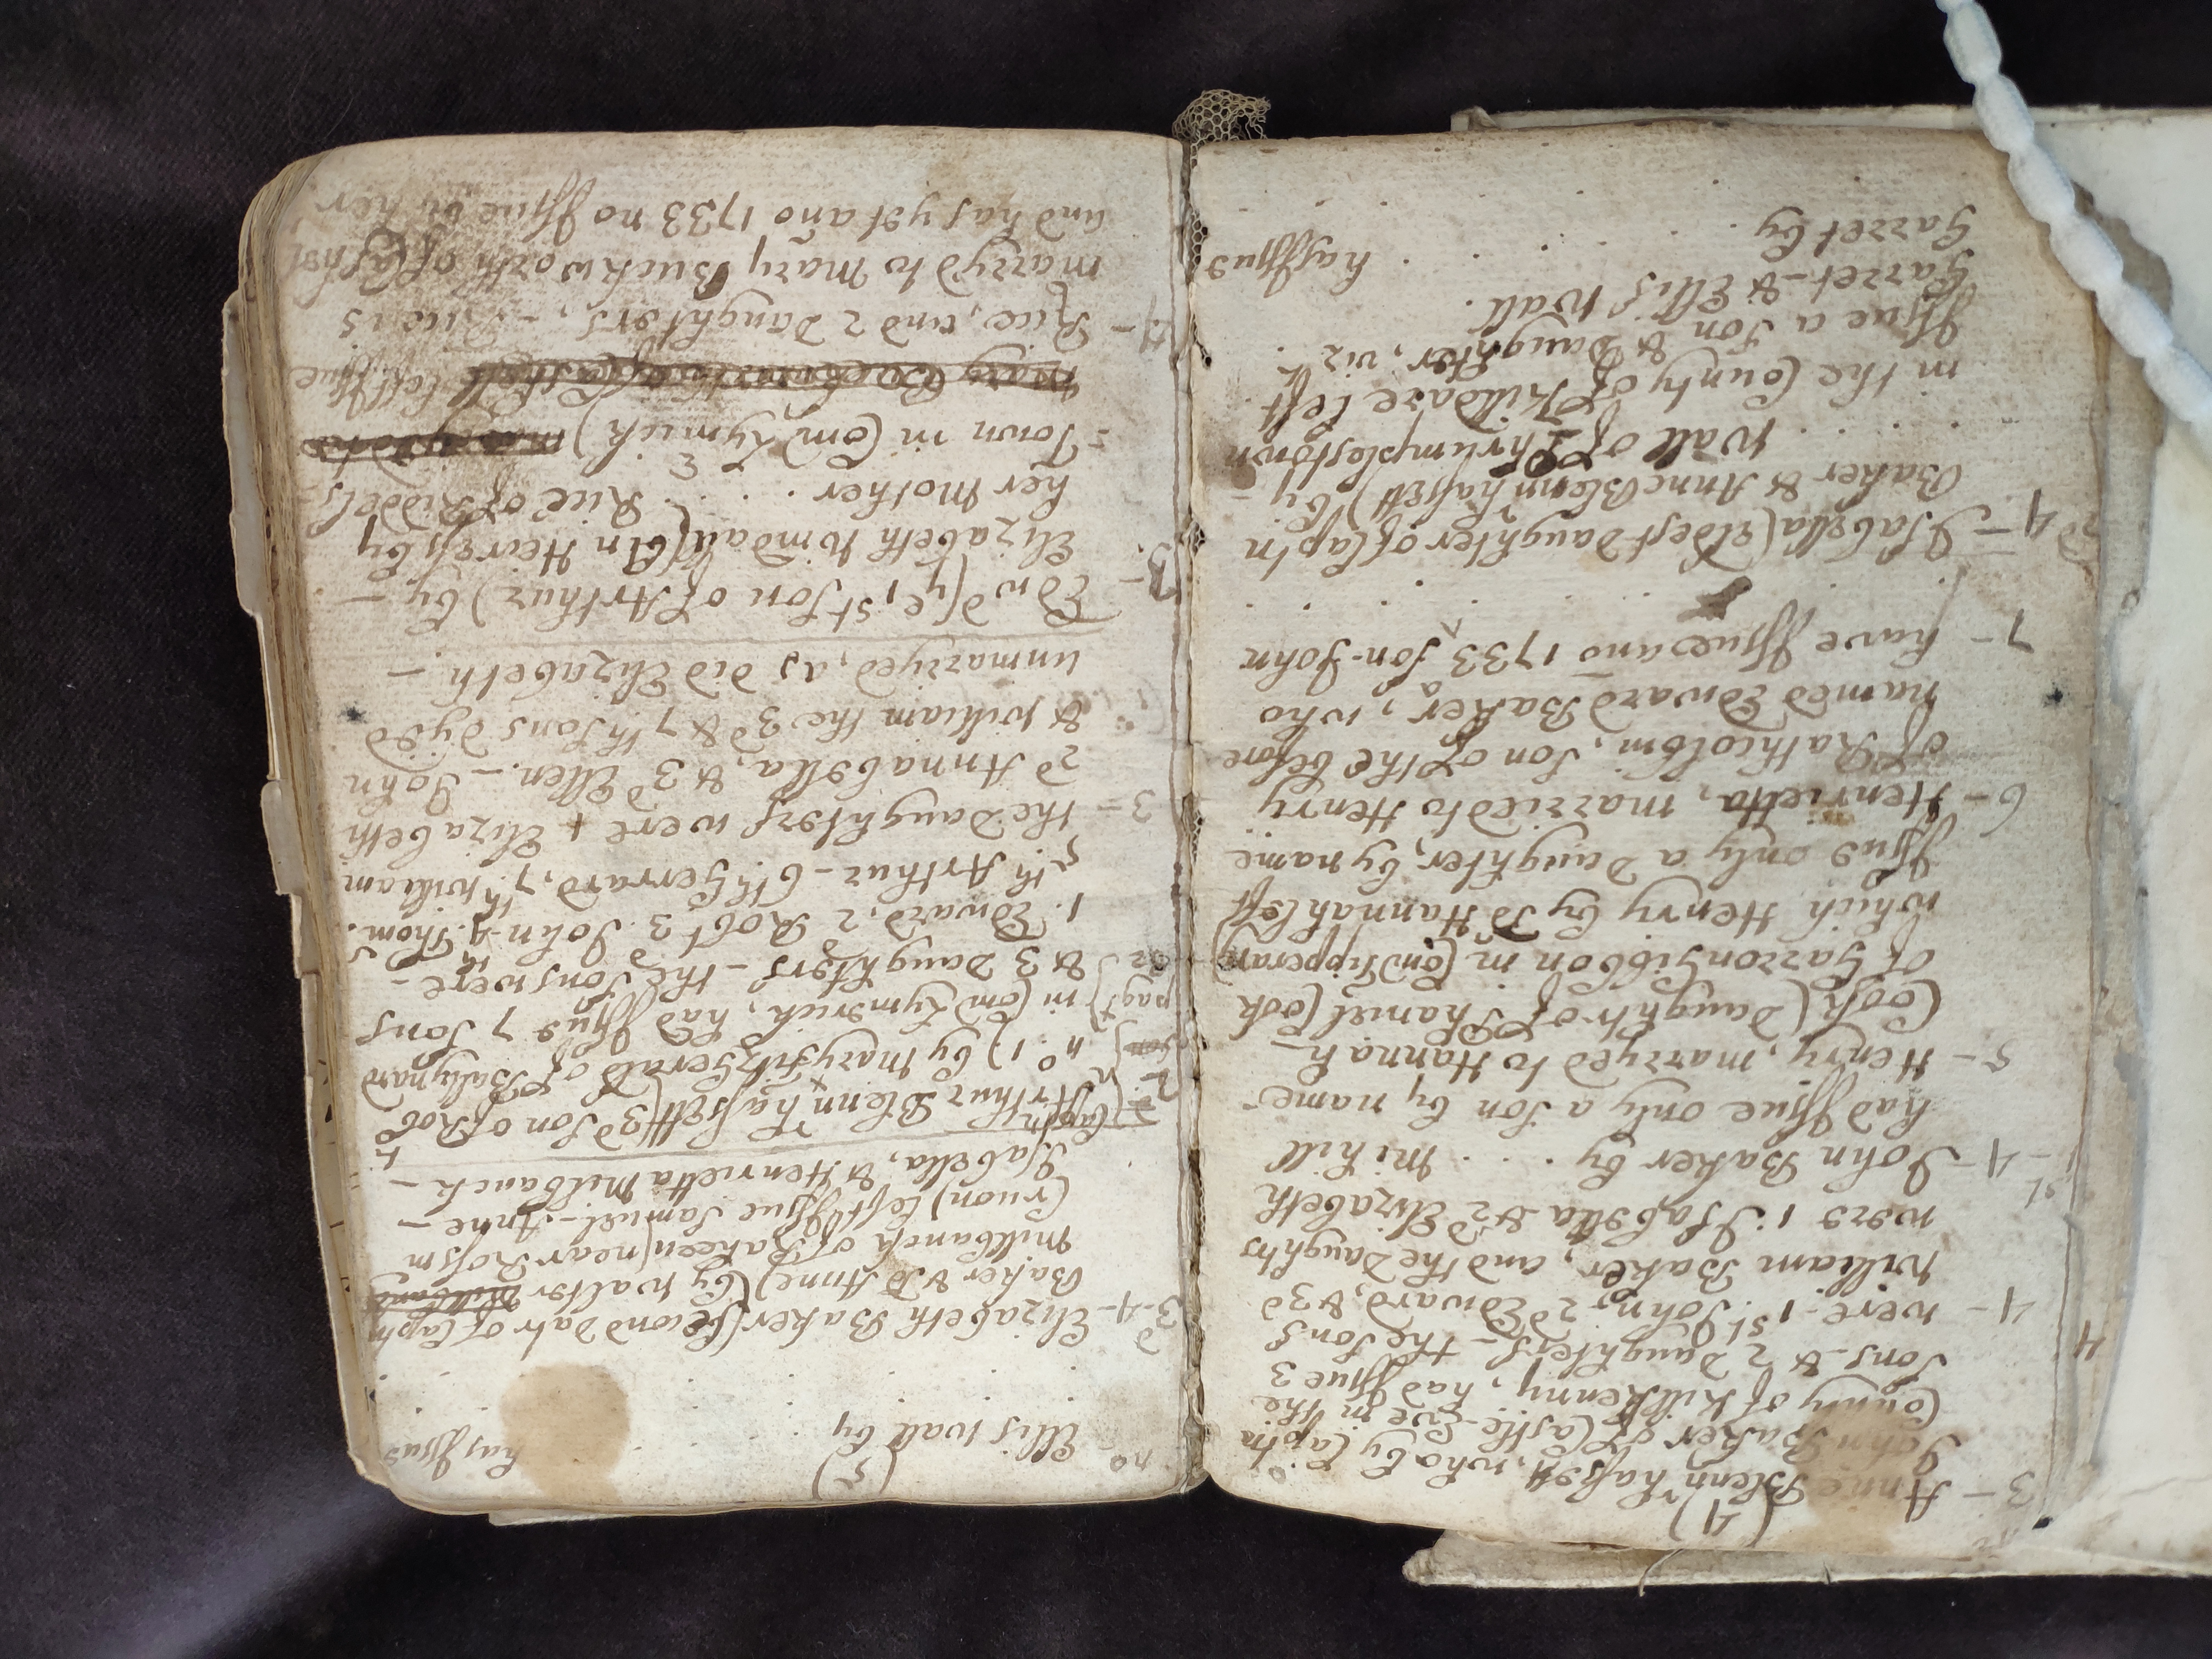 (4)
3 - Anne Blennrhasett, who by Captn
John Baker of Castle-Eve in the
County of Killkenny, had Issue 3
Sons & 2 Daughters - the Sons
4 - were 1st. John, 2d Edward, & 3d
William Baker, and the Daughtrs
were 1. Isabella & 2d Elizabeth
1st - 4 - John Baker by . . . Mihill
had Issue only a Son by name
5 - Henry, marryed to Hannah -
Cook (Daughtr of Phanuel Cook
of Garrongibbon in Com Tipperary)
which Henry by sd Hannah left
Issue only a Daughter, by name
6 - Henrietta, married to Henry
of Rathcolbin, Son of the before
named Edward Baker, who
7 - have Issue ano 1733 a Son - John
2d 4 - Isabella (eldest Daughter of Captn
Baker & Anne Blennrhasett) by -
. . . Wall of Thrumplestown
in the County of Kildare left
Issue a Son & Daughter, vizt.
Garret - & Ellis Wall.
Garret by . . . . . has Issue
(5)
Ellis Wall by . . . . has Issue
3d-4 - Elizabeth Baker (Second Datr of Captn
Baker & sd Anne) by Walter Millbanck
Millbanck of Rakeen (near Rossm
Cruon) left Issue Samuel - Anne -
Isabella, & Henrietta Milbanck -
Captn Arthur Blennrhasett (3d Son of Robt
no. 1) by Mary Fitzgerald of Ballynard
in Com Lymerick, had Issue 7 Sons
& 3 Daughters - the Sons were -
1. Edward, 2d Robt 3. John 4th. Thom.
5th Arthur - 6th Gerrard, 7th William
3 - the Daughters were + Elizabeth
2d Annabella, & 3d Ellen. - John
& William the 3d & 7th Sons dyed
unmarryed, as did Elizabeth. -
3. - Edwd (ye 1st Son of Arthur) by -
Elizabeth Windall (An Heiress by
her Mother . . . Rice of Riddels-
= Town in Com Lymrick) marryed to
Mary left Issue
4 - Rice, and 2 Daughters, - Rice is
marryd to Mary Buckworth of Cashel
and has yet ano 1733 no Issue by her